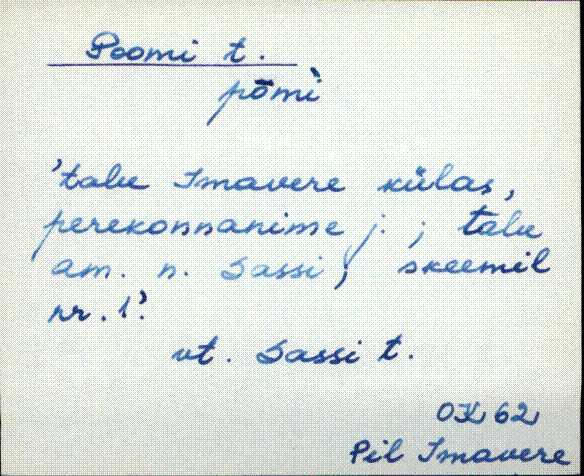 Poomi t.
pōmì
'talu Imavere külas,
perekonnanime j.; talu
am. n. Sassi; skeemil
nr. 1.'
vt. Sassi t.
OK 62
Pil Imavere